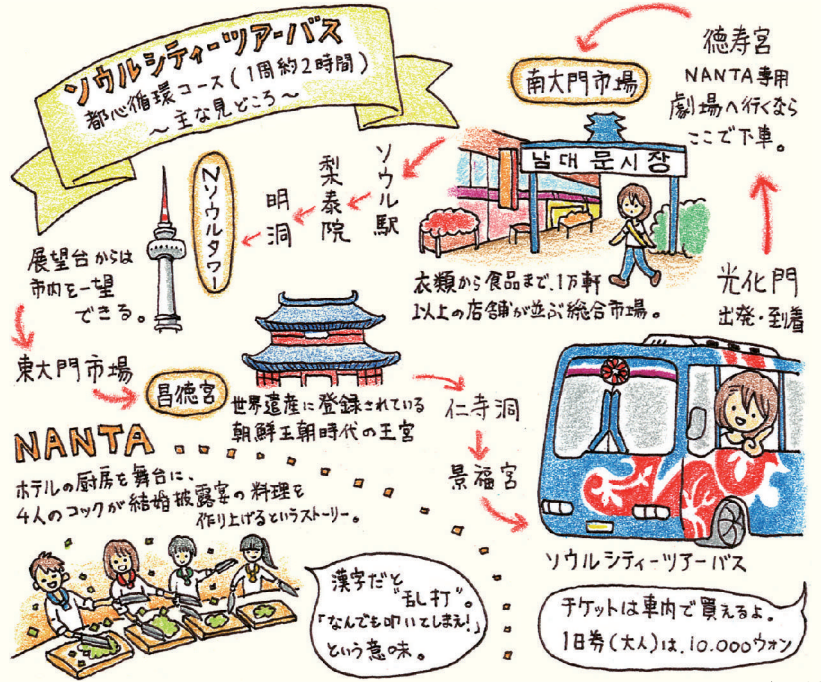 ソウルシティーツアーバス
都心循環コース(1周約2時間)
～主な見どころ～
光化門
出発・到着
徳寿宮
NANTA専用
劇場へ行くなら
ここで下車。
南大門市場
남대문시장
衣類から食品まで、1万軒
以上の店舗が並ぶ総合市場。
ソウル駅
梨泰院
明洞
Nソウルタワー
展望台からは
市内を一望
できる。
東大門市場
昌徳宮
世界遺産に登録されている
朝鮮王朝時代の王宮
仁寺洞
景福宮
ソウルシティーツアーバス
チケットは車内で買えるよ。
1日券(大人)は、10.000ウォン
NANTA
ホテルの厨房を舞台に、
4人のコックが結婚披露宴の料理を
作り上げるというストーリー。
漢字だと
"乱打"。
「なんでも叩いてしまえ!」
という意味。